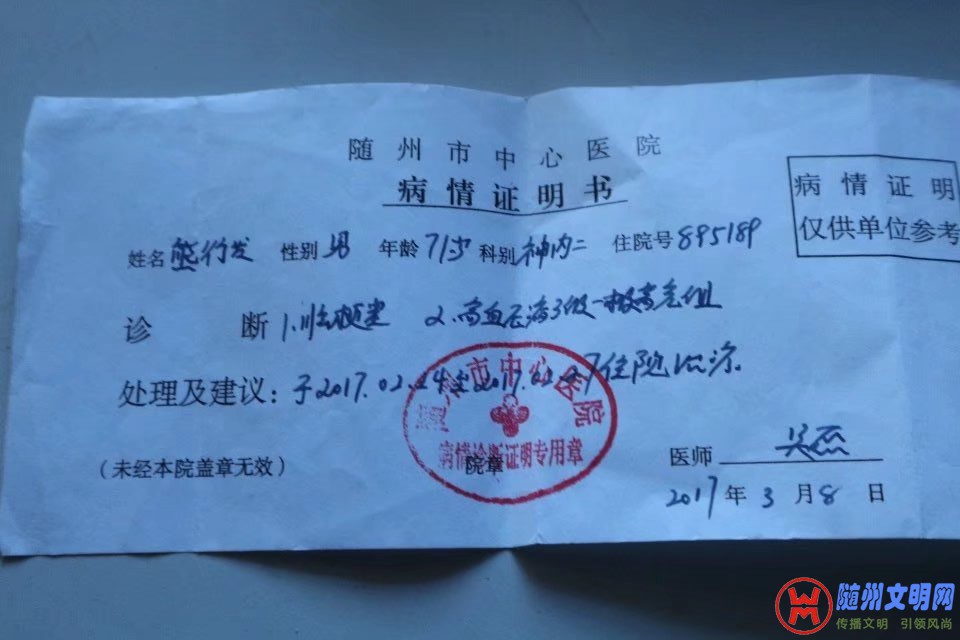 随州市中心医院
病情证明书
病情证明
仅供单位参考
姓名 熊行发 性别 男 年龄 71岁 科别 神内二 住院号 895189
诊断 1.脑梗塞 2.高血压病3级 极高危组
处理及建议：于2017.02.24至2017. 住院治疗.
随州市中心医院
病情诊断证明专用章
（未经本院盖章无效） 院章 医师 吴磊
2017年3月8日
随州文明网
传播文明 引领风尚